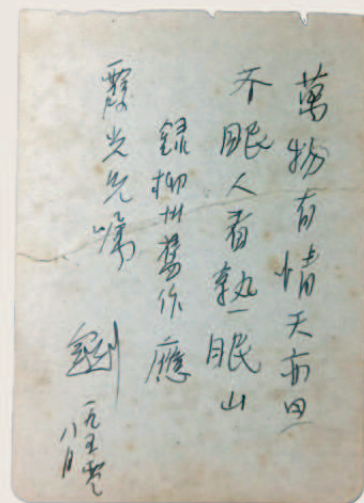 萬物有情天亦思
不眠人看熟眠山
錄柳州舊作應
霞光兄嘱
劉
一九五零
八月